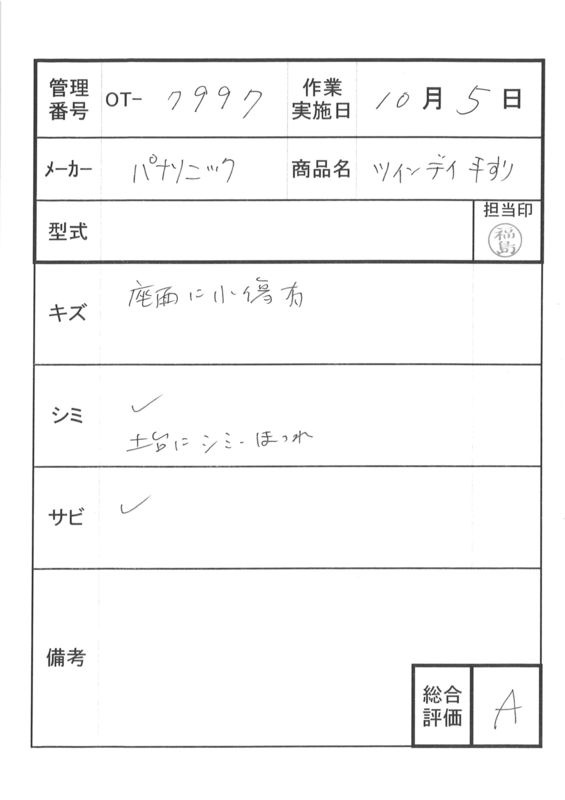 管理番号 OT- 7997 作業実施日 10月5日
メーカー パナソニック 商品名 ツインデイ手すり
型式 担当印
福島
キズ 座面に小傷有
シミ ✓
土台にシミ・ほつれ
サビ ✓
備考
総合評価 A